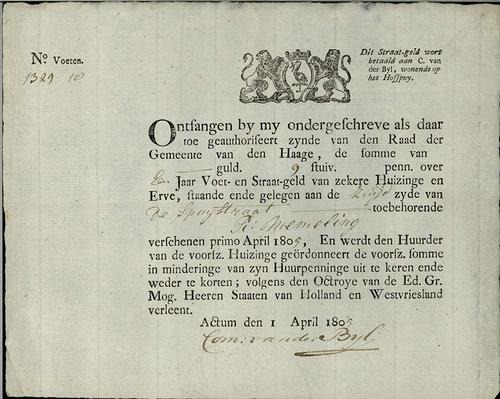 No. Voeten.
1329 10
Dit Straat-geld wort
betaald aan C. van
der Byl, wonende op
het Hofspuy.
Ontfangen by my ondergeschreve als daar
toe geauthoriseert zynde van den Raad der
Gemeente van den Haage, de somme van
guld. 9 stuiv. penn. over
Jaar Voet- en Straat-geld van zekere Huizinge en
Erve, staande ende gelegen aan de Zuijd zyde van
De Spuijstraat toebehorende
verschenen primo April 1805, En werdt den Huurder
van de voorsz. Huizinge geördonneert de voorsz. somme
in minderinge van zyn Huurpenninge uit te keren ende
weder te korten; volgens den Octroye van de Ed. Gr.
Mog. Heeren Staaten van Holland en Westvriesland
verleent.
Actum den 1 April 1805
Corn: van der Byl